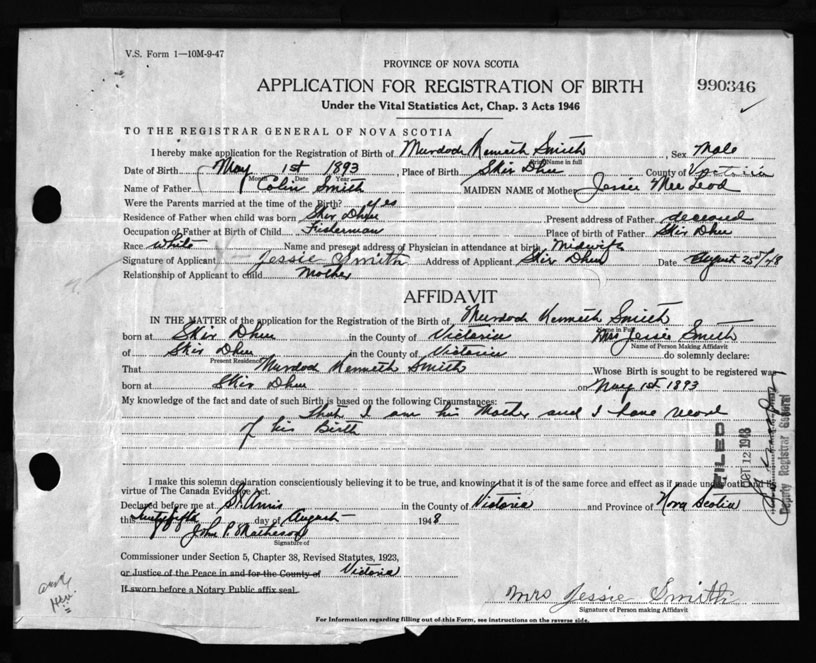 V.S. Form 1—10M-9-47
PROVINCE OF NOVA SCOTIA
APPLICATION FOR REGISTRATION OF BIRTH
990346
Under the Vital Statistics Act, Chap. 3 Acts 1946
TO THE REGISTRAR GENERAL OF NOVA SCOTIA
I hereby make application for the Registration of Birth of Murdock Kenneth Smith, Sex Male
Print Name in full
Date of Birth May 1st 1893, Place of Birth Skir Dhu County of Victoria
Month Date Year
Name of Father Colin Smith MAIDEN NAME of Mother Jessie Mc Leod
Were the Parents married at the time of the Birth? yes
Residence of Father when child was born Skir Dhu Present address of Father deceased
Occupation of Father at Birth of Child Fisherman Place of birth of Father Skir Dhu
Race white Name and present address of Physician in attendance at birth, Midwife
Signature of Applicant Jessie Smith Address of Applicant Skir Dhu Date August 25/48
Relationship of Applicant to child Mother
AFFIDAVIT
IN THE MATTER of the application for the Registration of Birth of, Murdock Kenneth Smith
Name in Full
born at Skir Dhu in the County of Victoria Mrs Jessie Smith
Name of Person Making Affidavit
of Skir Dhu in the County of Victoria do solemnly declare:
Present Residence
That Murdock Kenneth Smith Whose Birth is sought to be registered was
born at Skir Dhu on May 1st 1893
My knowledge of the fact and date of such Birth is based on the following Circumstances:
That I am his Mother and I have record
of his Birth
FILED
OCT 12 1948
Deputy Registrar General
I make this solemn declaration conscientiously believing it to be true, and knowing that it is of the same force and effect as if made under oath and by
virtue of The Canada Evidence Act.
Declared before me at St Anns in the County of Victoria and Province of Nova Scotia
this twenty fifth day of August 1948
John P. Matheson
Signature of
Commissioner under Section 5, Chapter 38, Revised Statutes, 1923,
or Justice of the Peace in and for the County of Victoria
If sworn before a Notary Public affix seal.
Mrs Jessie Smith
Signature of Person making Affidavit
For Information regarding filling out of this Form, see instructions on the reverse side.